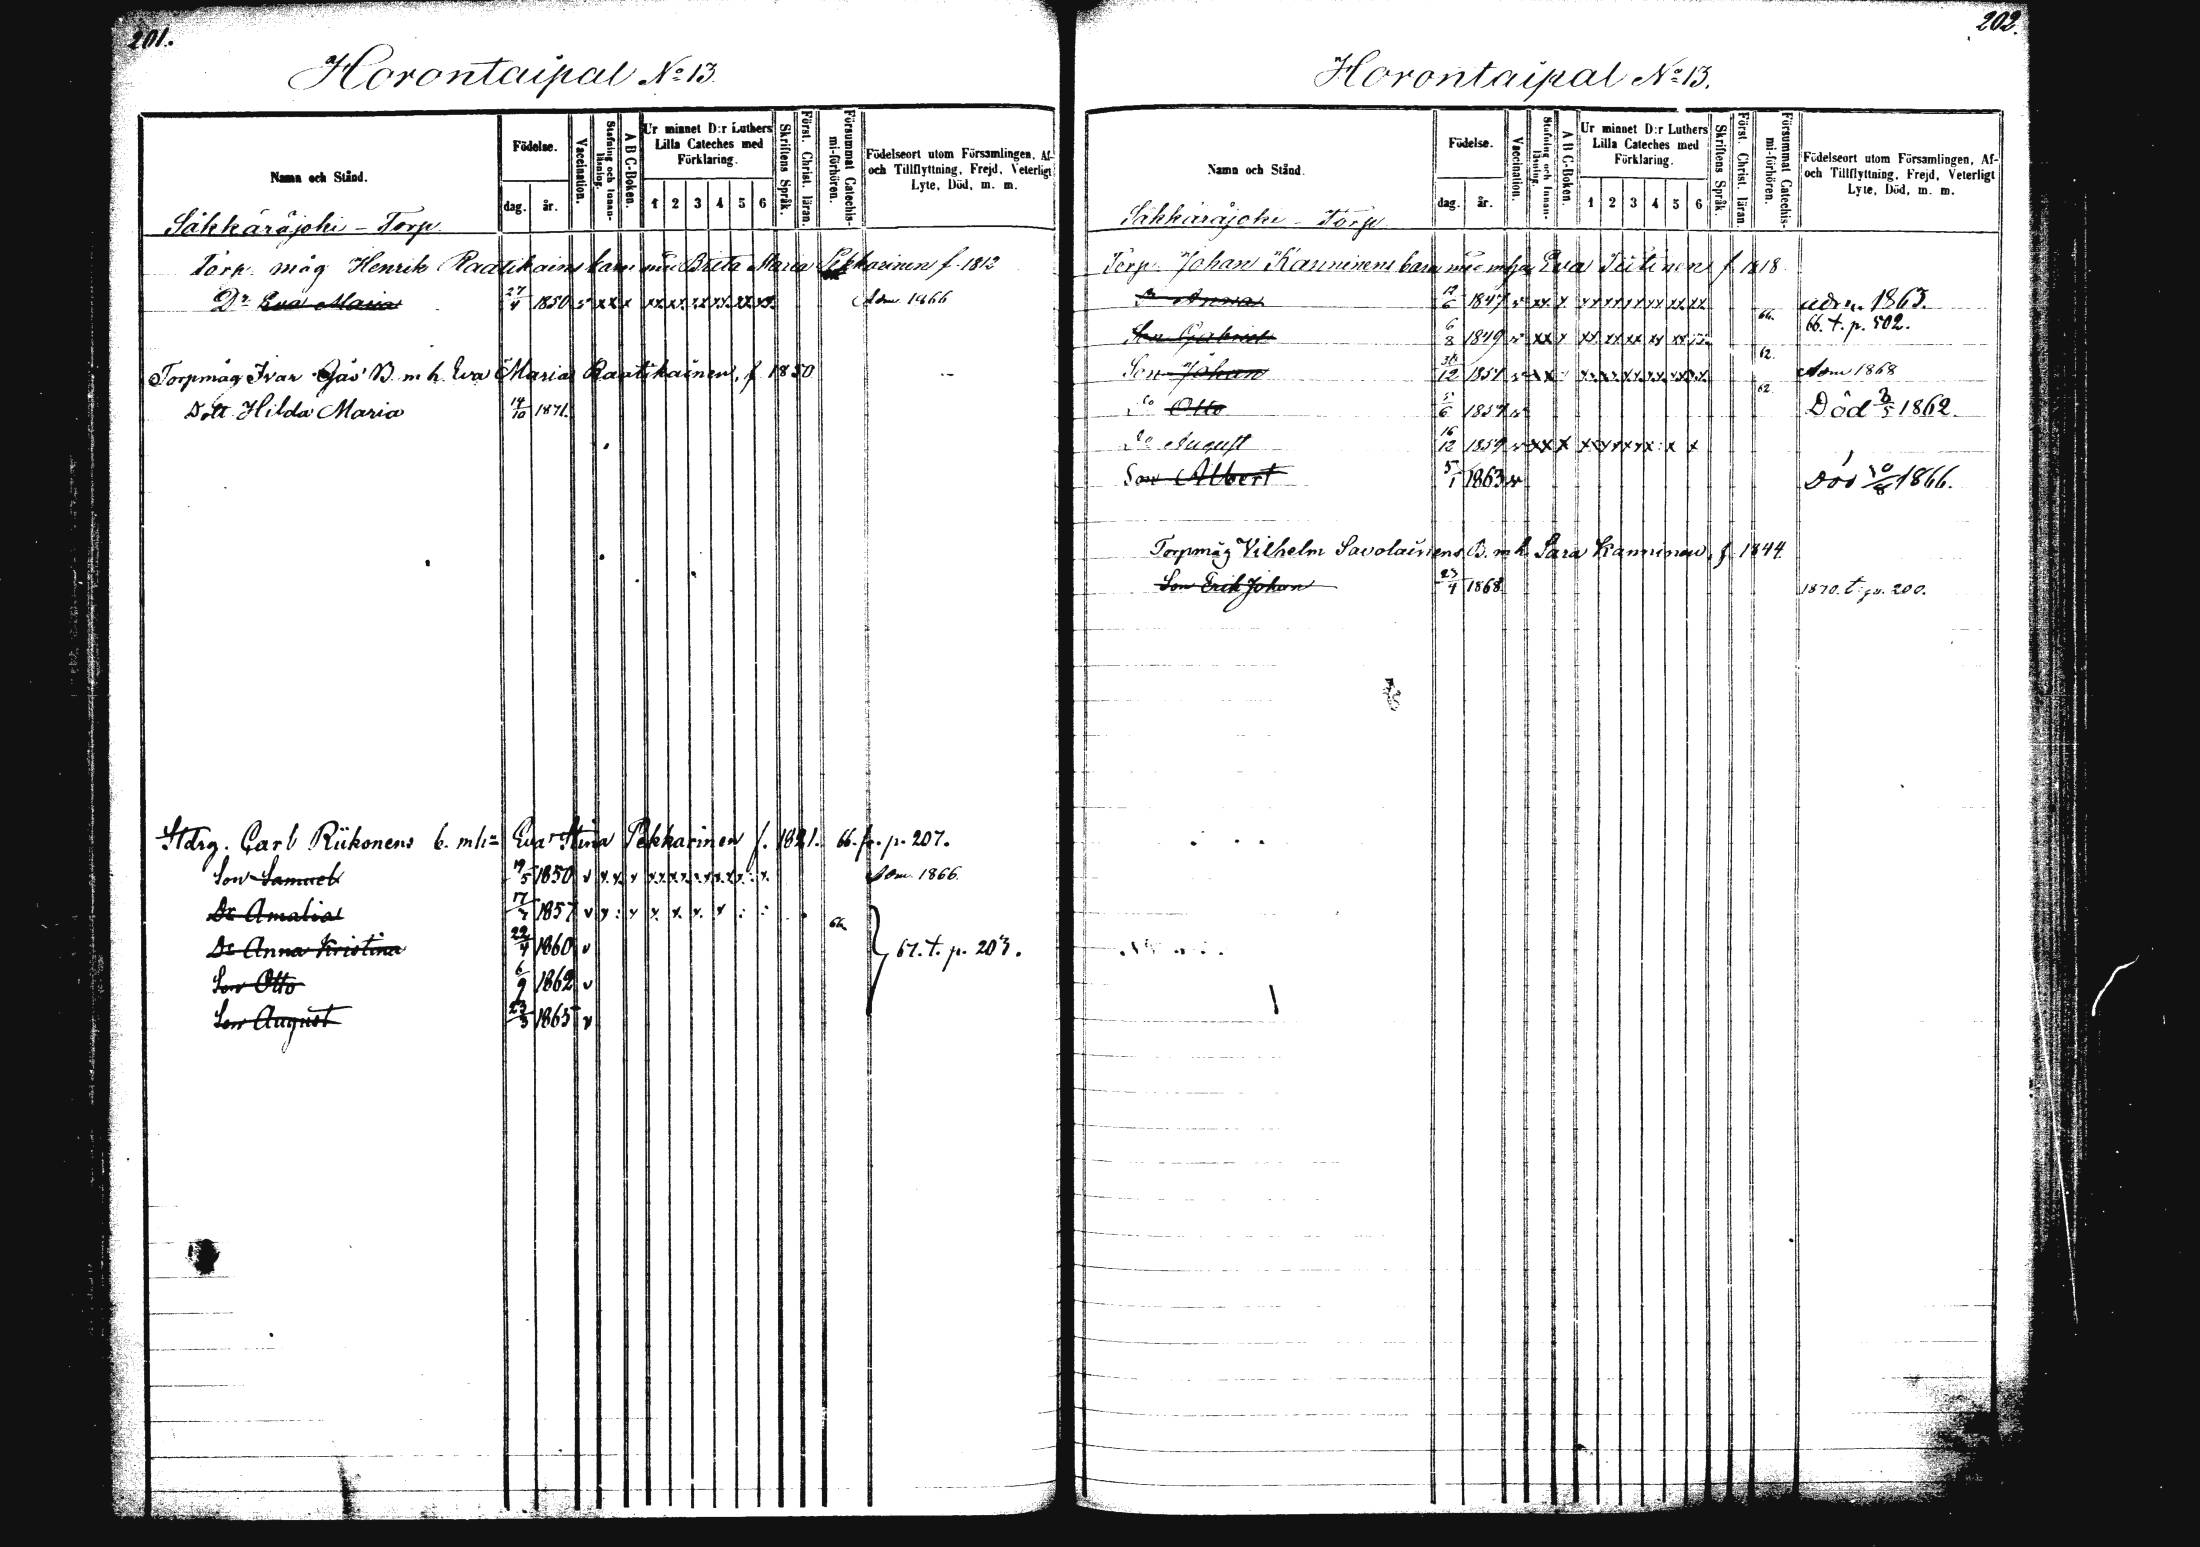 201.
Horontaipal No 13.
Namn och Stånd.
Födelse.
dag. år.
Vaccination.
Stafning och Innan-läsning.
A B C-Boken.
Ur minnet D:r Luthers Lilla Cateches med Förklaring.
1 2 3 4 5 6
Skriftens Språk.
Först. Christ. läran.
Försummat Catechis-mi-förhören.
Födelseort utom Församlingen, Af- och Tillflyttning, Frejd, Veterligt Lyte, Död, m. m.
Säkkäräjoki - Torp
Torp. måg Henrik Raatikains barn Brita Maria Pekkarinen f. 1812
Dr Eva Maria 27/4 1850 v xx x xx xx xx xx xx xx Adm. 1866
Torpmåg Ivar Gås B. m. h. Eva Maria Raatikainen, f. 1850
Dott. Hilda Maria 14/10 1871.
Stdrg. Carl Riikonens b. mh= Eva Stina Pekkarinen f. 1821. 66. fr. p. 207.
Son Samuel 19/5 1850 v Adm. 1866.
Dr Amalia 1857 v
Dr Anna Kristina 22/4 1860 v 67. t. p. 203.
Son Otto 6/9 1862 v
Son August 23/3 1865 v
202.
Horontaipal No 13.
Namn och Stånd.
Födelse.
dag. år.
Vaccination.
Stafning och Innan-läsning.
A B C-Boken.
Ur minnet D:r Luthers Lilla Cateches med Förklaring.
1 2 3 4 5 6
Skriftens Språk.
Först. Christ. läran.
Försummat Catechis-mi-förhören.
Födelseort utom Församlingen, Af- och Tillflyttning, Frejd, Veterligt Lyte, Död, m. m.
Säkkäräjoki - Torp
Torp. Johan Kanninens barn Eva Tiitinen f. 1818
Dr Anna 12/6 1847 v xx x xx xx xx xx xx xx adm. 1863.
Son Gabriel 6/8 1849 v xx x 66. 66. t. p. 502.
Son Johan 12 1851 v 62. Adm 1868
Do Otto 5/6 1857 v 62. Död 3/5 1862.
Do August 16/12 1859 v xx x
Son Albert 5/1 1863 v Död 10/8 1866.
Torpmåg Vilhelm Savolainens B. m. h. Sara Kanninen, f. 1844
Son Erik Johan 23/4 1868 1870. t. p. 200.